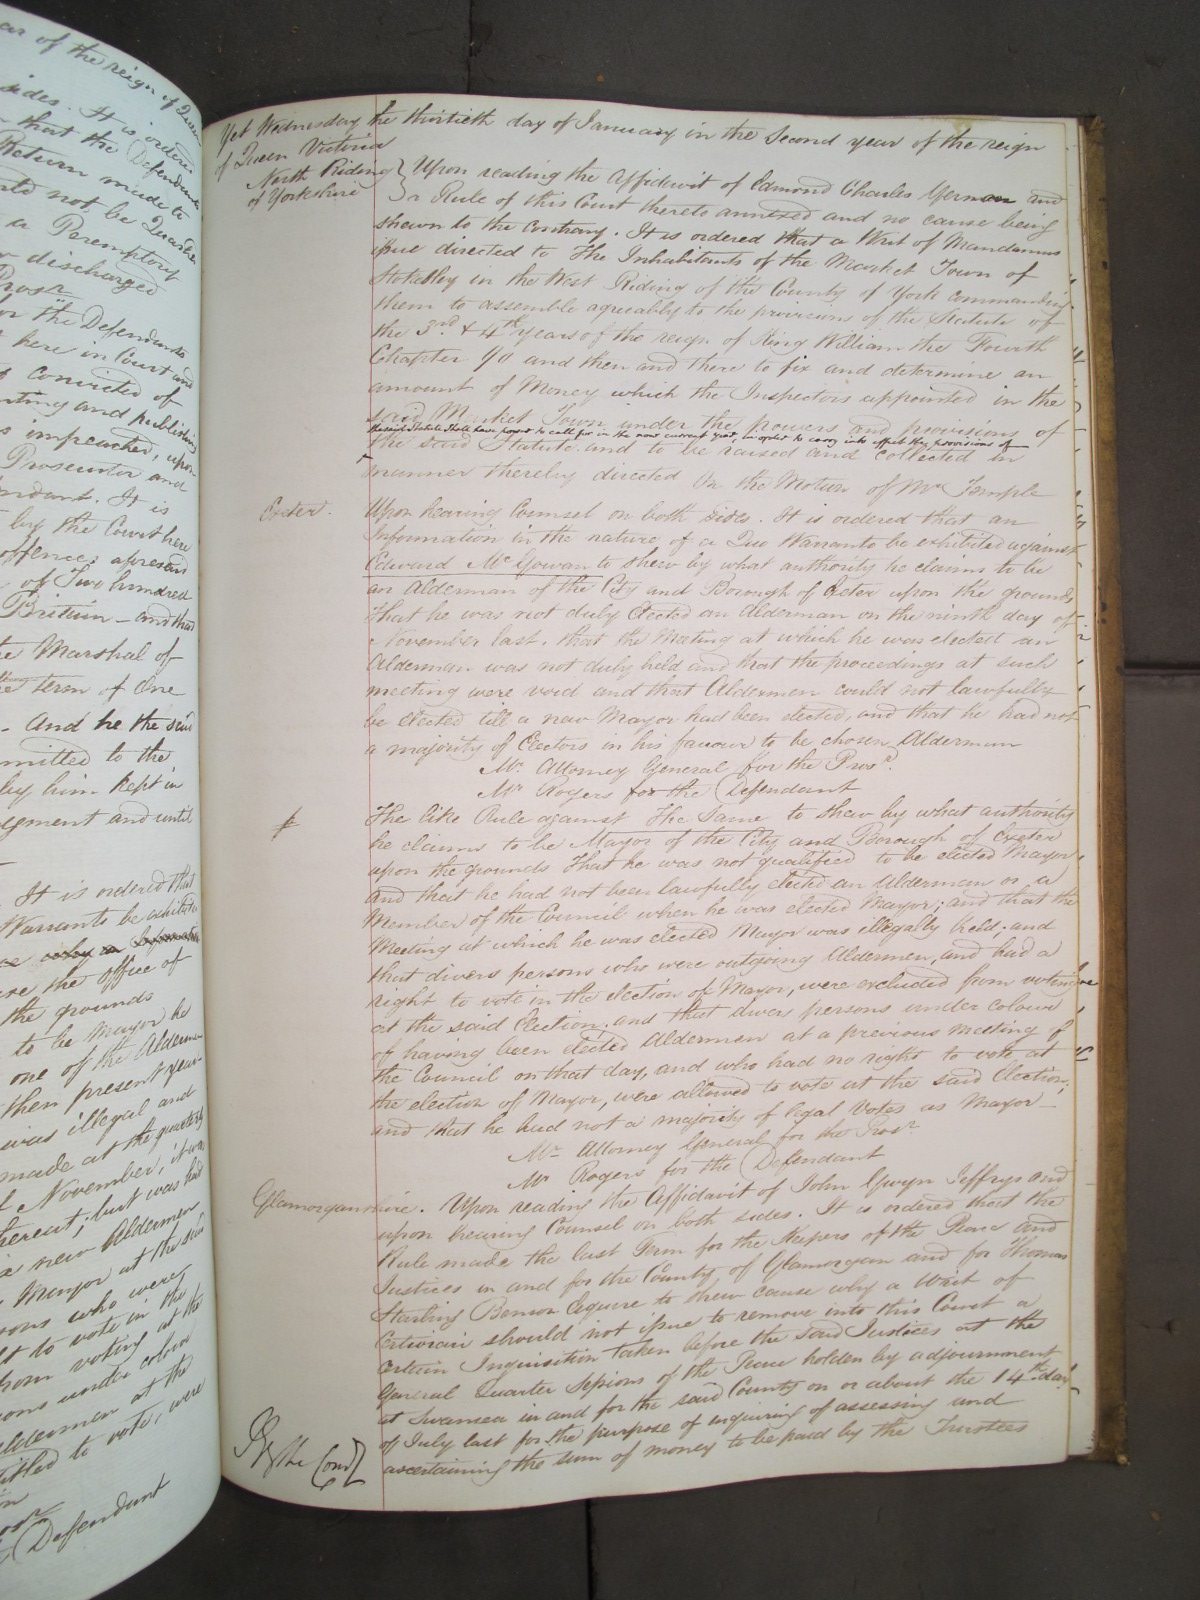 ear of the reign of Queen
sides. It is ordered
that the Defendants
Return made to
not be Quashed
a Peremptory
discharged
Pros.r
or the Defendants
here in Court and
convicted of
and publishing
impeached, upon
Prosecutor and
It is
by the Court here
offence, aforesaid
of Two hundred
Britain - and that
the Marshal of
the term of One
- And he the said
mitted to the
by him kept in
dgment and until
It is ordered that
Warranto be exhibited
the office of
the grounds
to be Mayor he
one of the Aldermen
then present year
was illegal and
made at the quarterly
November, it was
thereat; but was held
new Aldermen
Mayor at the said
sons who were
to vote in the
from voting at the
sons under colour
Aldermen at the
titled to vote, were
Defendant
Yet Wednesday the thirtieth day of January in the Second year of the reign
of Queen Victoria
North Riding
of Yorkshire
Upon reading the Affidavit of Edmond Charles Yerman and
a Rule of this Court thereto annexed and no cause being
shewn to the contrary. It is ordered that a Writ of Mandamus
issue directed to The Inhabitants of the Market Town of
Stokesley in the West Riding of the County of York commanding
them to assemble agreeably to the provision of the Statute of
the 3rd & 4th years of the reign of King William the Fourth
Chapter 90 and then and there to fix and determine an
amount of Money which the Inspectors appointed in the
said Market Town under the powers and provisions of
the said Statute shall have power to call for in the now current year, in order to carry into effect the provisions of
the said Statute and to be raised and collected in
manner thereby directed On the Motion of Mr. Temple
Exeter.
Upon hearing Counsel on both sides. It is ordered that an
Information in the nature of a Quo Warranto be exhibited against
Edward Mc Gowan to shew by what authority he claims to be
an Alderman of the City and Borough of Exeter upon the grounds
That he was not duly Elected an Alderman on the ninth day of
November last. that the Meeting at which he was elected an
Alderman was not duly held and that the proceedings at such
meeting were void and that Aldermen could not lawfully
be elected till a new Mayor had been elected, and that he had not
a majority of Electors in his favour to be chosen Alderman
Mr. Attorney General for the Prosr.
Mr. Rogers for the Defendant
The like Rule against The Same to shew by what authority
he claims to be Mayor of the City and Borough of Exeter
upon the grounds That he was not qualified to be elected Mayor,
and that he had not been lawfully elected an Alderman or a
Member of the Council when he was elected Mayor; and that the
Meeting at which he was elected Mayor was illegally held; and
that divers persons who were outgoing Aldermen, and had a
right to vote in the election of Mayor, were excluded from voting
at the said Election; and that divers persons under colour
of having been elected Aldermen at a previous meeting of
the Council on that day, and who had no right to vote at
the election of Mayor, were allowed to vote at the said Election;
and that he had not a majority of legal Votes as Mayor -
Mr. Attorney General for the Prosr.
Mr. Rogers for the Defendant
Glamorganshire. Upon reading the Affidavit of John Gwyn Jeffrys and
upon hearing Counsel on both sides. It is ordered that the
Rule made the last Term for the Keepers of the Peace and
Justices in and for the County of Glamorgan and for Thomas
Starling Benson Esquire to shew cause why a Writ of
Certiorari should not issue to remove into this Court a
certain Inquisition taken before the said Justices at the
General Quarter Sessions of the Peace holden by adjournment
at Swansea in and for the said County on or about the 14th day
of July last for the purpose of enquiring of assessing and
ascertaining the sum of money to be paid by the Trustees
By the Court